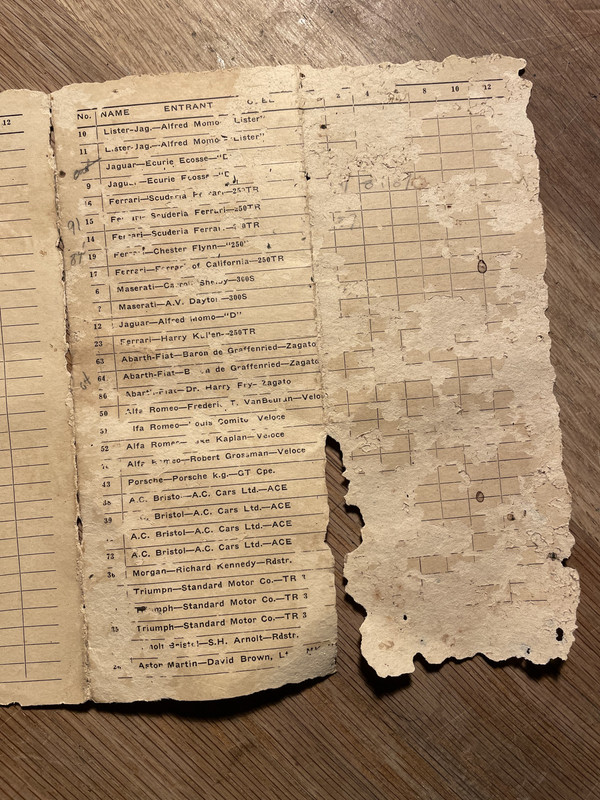 12
No. NAME ENTRANT 2 4 6 8 10 12
10 Lister-Jag.—Alfred Momo "Lister"
11 Lister-Jag.—Alfred Momo "Lister"
Jaguar—Ecurie Ecosse—"D"
9 Jaguar—Ecurie Ecosse—"D"
16 Ferrari—Scuderia Ferrari—250TR
15 Ferrari—Scuderia Ferrari—250TR
14 Ferrari—Scuderia Ferrari—250TR
19 Ferrari—Chester Flynn—"250"
17 Ferrari—Ferrari of California—250TR
6 Maserati—Carroll Shelby—300S
7 Maserati—A.V. Dayton—300S
12 Jaguar—Alfred Momo—"D"
23 Ferrari—Harry Kullen—250TR
63 Abarth-Fiat—Baron de Graffenried—Zagato
64 Abarth-Fiat—Baron de Graffenried—Zagato
86 Abarth-Fiat—Dr. Harry Fry—Zagato
50 Alfa Romeo—Frederic T. VanBeuran—Veloce
51 Alfa Romeo—Louis Comito Veloce
52 Alfa Romeo Kaplan—Veloce
Alfa Romeo—Robert Grossman—Veloce
43 Porsche—Porsche k.g.—GT Cpe.
38 A.C. Bristol—A.C. Cars Ltd.—ACE
39 Bristol—A.C. Cars Ltd.—ACE
A.C. Bristol—A.C. Cars Ltd.—ACE
72 A.C. Bristol—A.C. Cars Ltd.—ACE
36 Morgan—Richard Kennedy—Rdstr.
Triumph—Standard Motor Co.—TR 3
Triumph—Standard Motor Co.—TR 3
Triumph—Standard Motor Co.—TR 3
Arnolt Bristol—S.H. Arnolt—Rdstr.
Aston Martin—David Brown, Lt